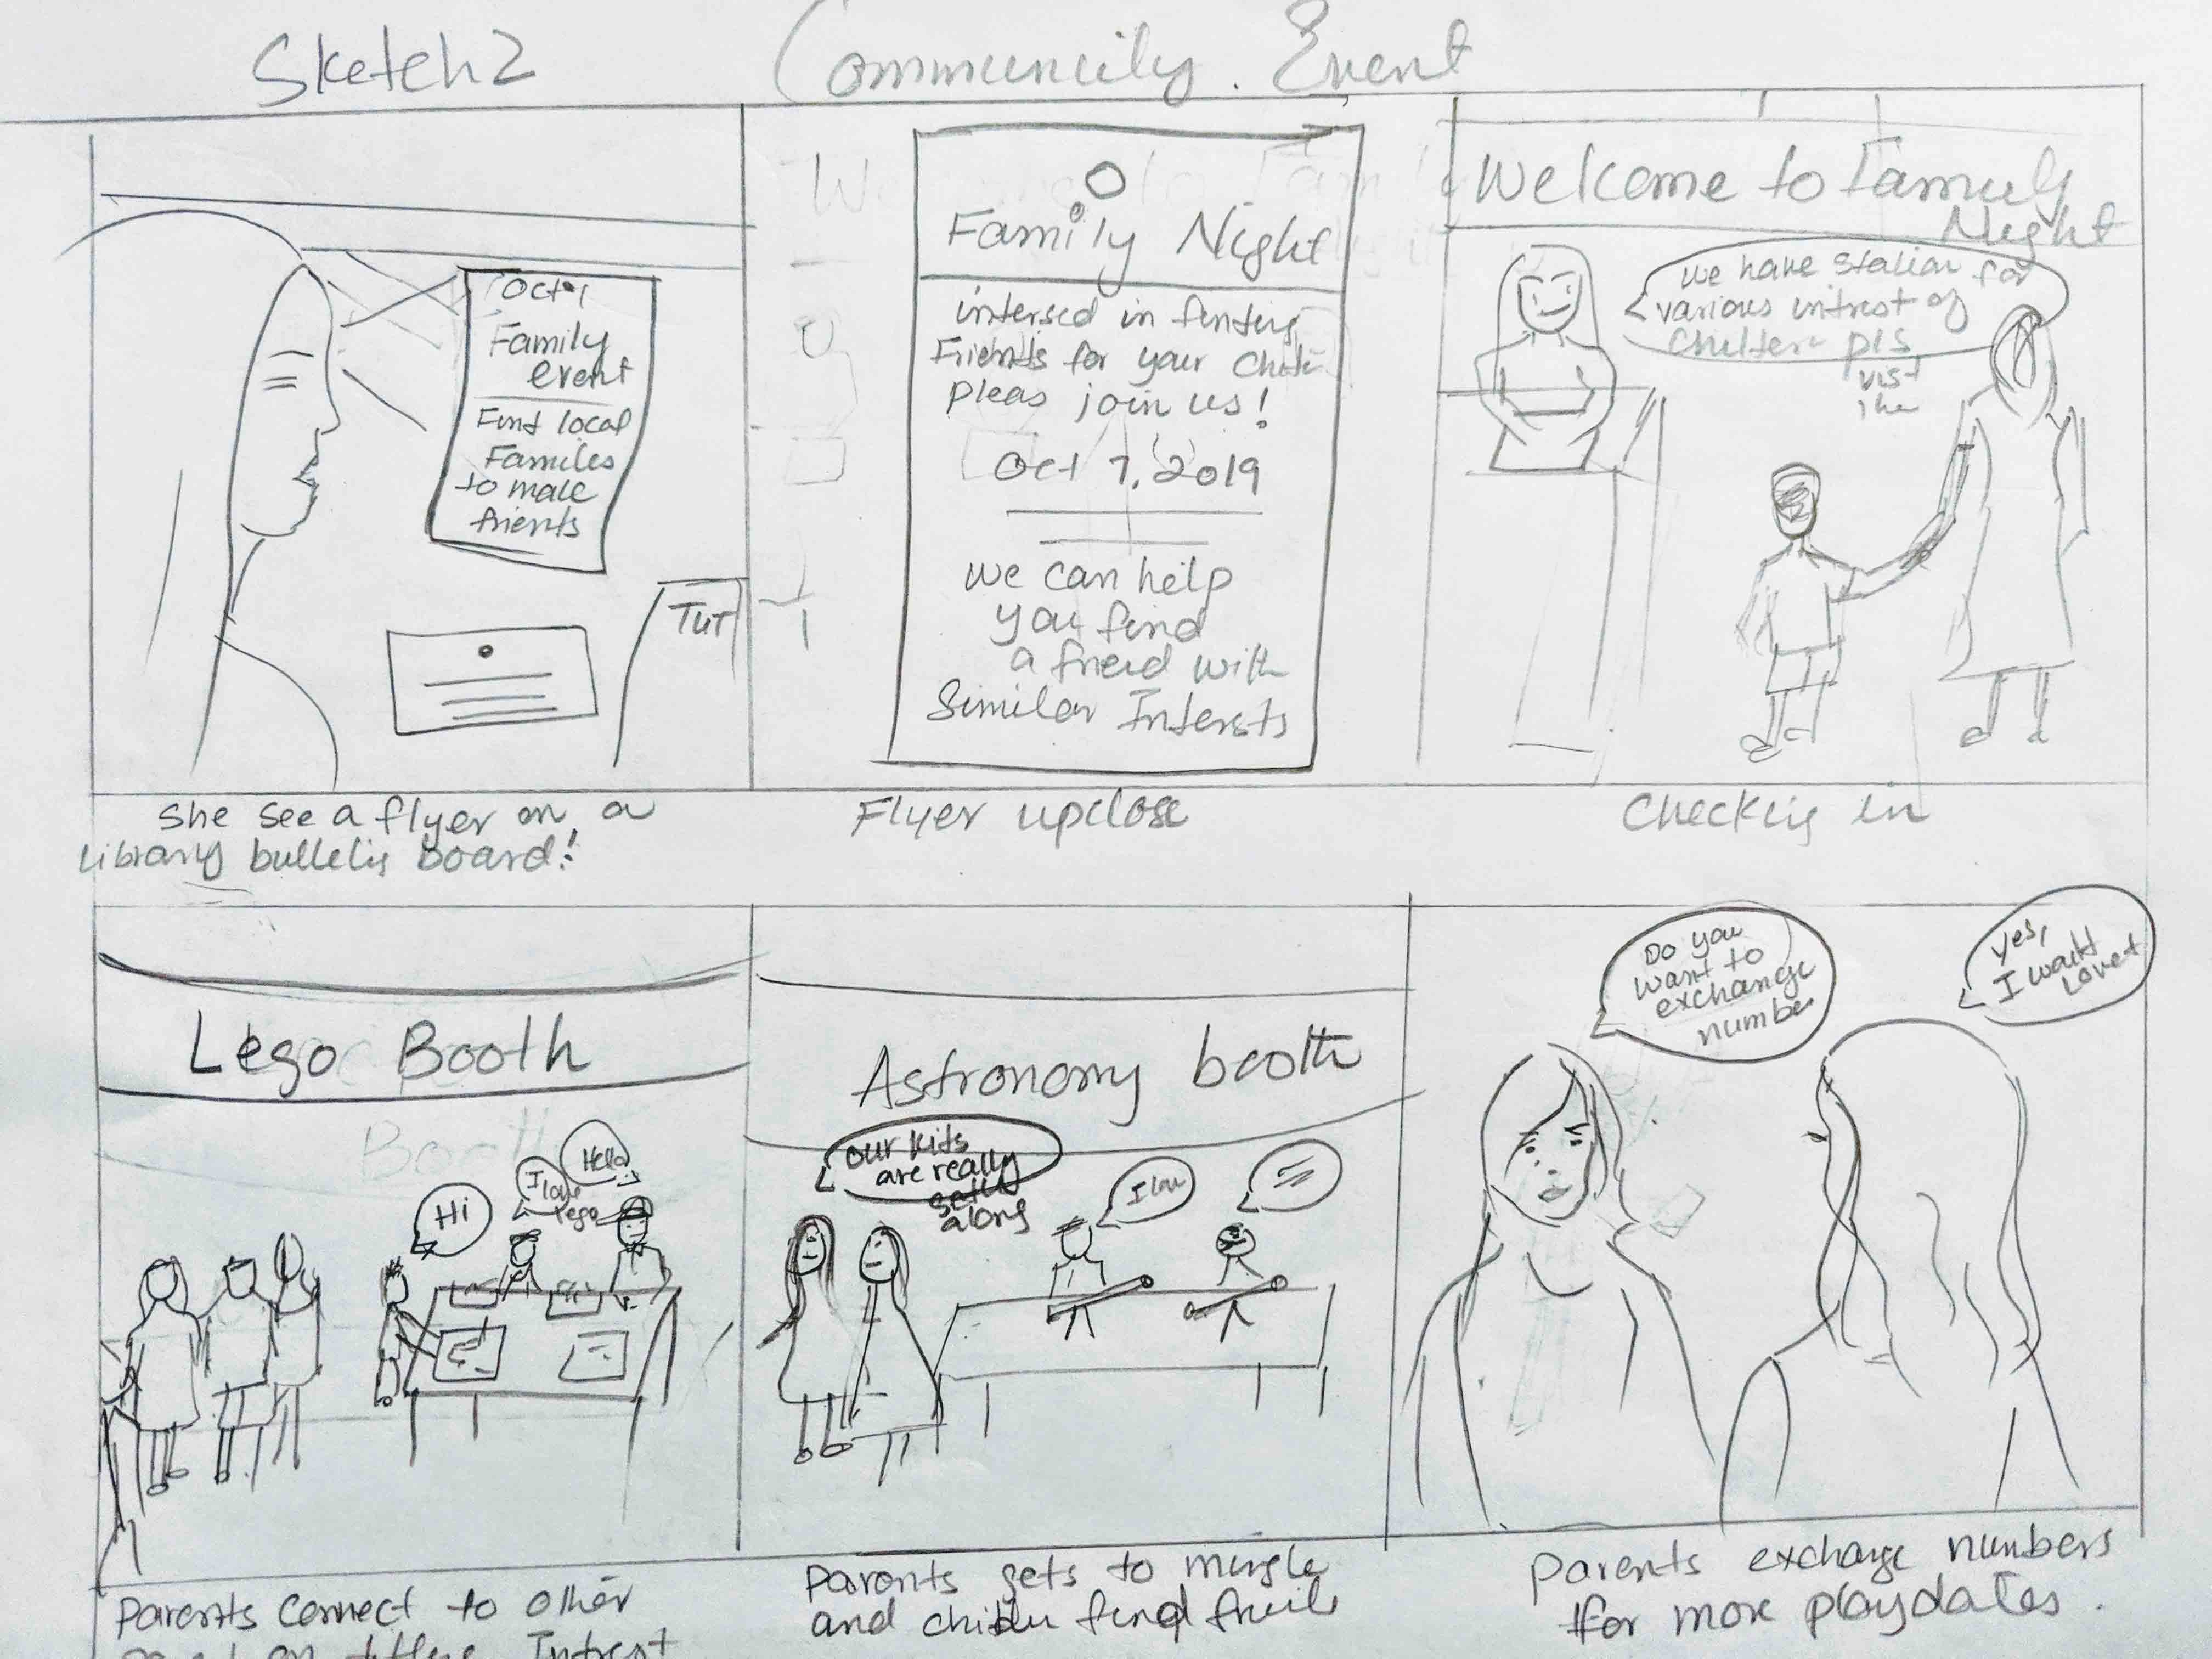 Sketch 2
Community Event
Oct 1
Family
event
Find local
Familes
to make
frients
TUT
She see a flyer on a
library bulletin board!
Family Night
intersed in finting
Friends for your
Pleas join us!
Oct 7, 2019
we can help
you find
a friend with
Similar Intersts
Flyer upclose
Welcome to Family
Night
we have station for
various intrest of
pls
vist
the
Checkig in
Lego Booth
Boot
Hi
I love
lego
Hello
Parents connect to other
Intrest
Astronomy booth
our kits
are really
along
I lov
Parents gets to mingle
and find
Do you
want to
exchange
number
yes,
I would
love t
Parents exchange numbers
for more playdates.